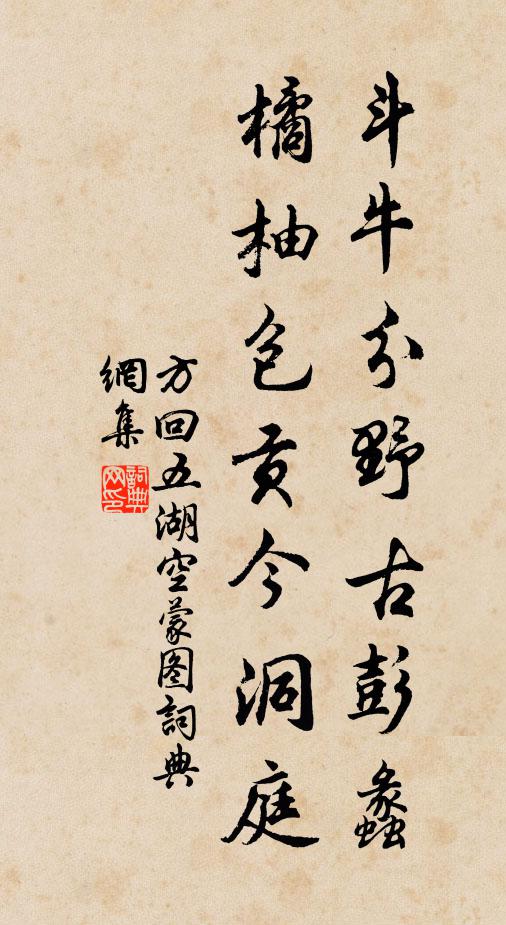 斗牛分野古彭蠡
橘柚包贡今洞庭
方回五湖空蒙图詞典
網集
詞典網印